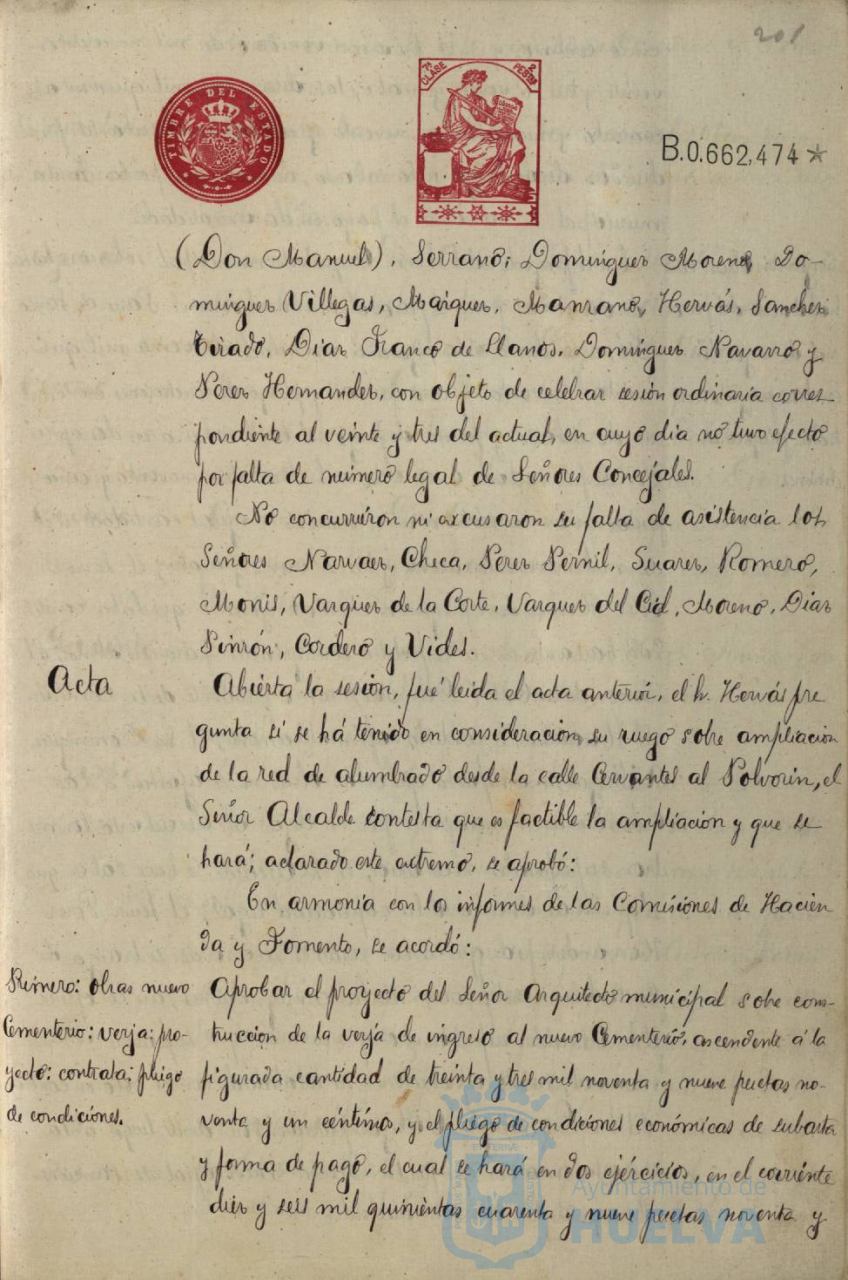 201
TIMBRE DEL ESTADO
7ª CLASE 2 PESTAS
B.0.662,474*
(Don Manuel), Serrano; Domínguez Moreno, Do-
mínguez Villegas, Maiquez, Manzano, Hervás, Sanchez
Tirado, Diaz Franco de Llanos, Domínguez Navarro y
Perez Hernandez, con objeto de celebrar sesión ordinaria corres
pondiente al veinte y tres del actual, en cuyo dia no tuvo efecto
por falta de número legal de Señores Concejales.
No concurrieron ni excusaron su falta de asistencia los
Señores Narvaez, Checa, Perez Pernil, Suarez, Romero,
Monis, Vazquez de la Corte, Vazquez del Cid, Moreno, Diaz
Pinzón, Cordero y Vides.
Acta
Abierta la sesión, fué leida el acta anterior, el Sr. Hervás pre
gunta si se há tenido en consideración su ruego sobre ampliación
de la red de alumbrado desde la calle Cervantes al Polvorin, el
Señor Alcalde contesta que es factible la ampliación y que se
hará; aclarado este extremo, se aprobó:
En armonía con los informes de las Comisiones de Hacien
da y Fomento, se acordó:
Primero: obras nuevo
Cementerio: verja: pro-
yecto: contrata: pliego
de condiciones.
Aprobar el proyecto del Señor Arquitecto municipal sobre cons-
trucción de la verja de ingreso al nuevo Cementerio, ascendente á la
figurada cantidad de treinta y tres mil noventa y nueve pesetas no-
venta y un céntimos, y el pliego de condiciones económicas de subasta
y forma de pago, el cual se hará en dos ejercicios, en el corriente
diez y seis mil quinientas cuarenta y nueve pesetas noventa y
Ayuntamiento de
HUELVA